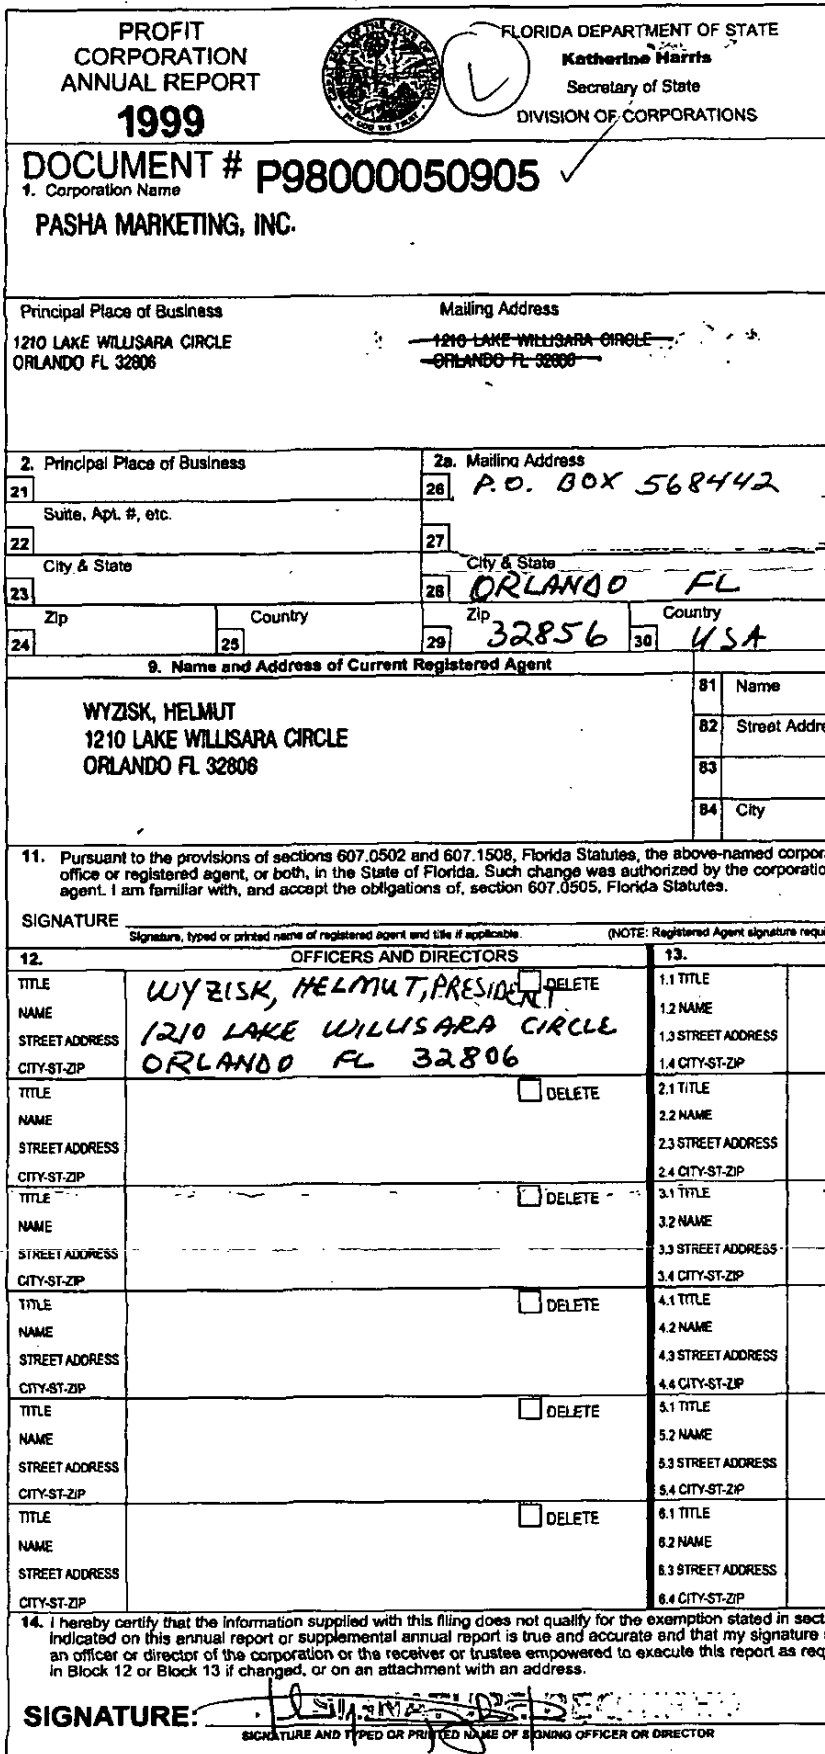 PROFIT
CORPORATION
ANNUAL REPORT
1999
FLORIDA DEPARTMENT OF STATE
Katherine Harris
Secretary of State
DIVISION OF CORPORATIONS
DOCUMENT # P98000050905
1. Corporation Name
PASHA MARKETING, INC.
Principal Place of Business
Mailing Address
1210 LAKE WILLISARA CIRCLE
ORLANDO FL 32806
1210 LAKE WILLISARA CIRCLE
ORLANDO FL 32806
2. Principal Place of Business
2a. Mailing Address
21
26 P.O. BOX 568442
Suite, Apt. #, etc.
22
27
City & State
City & State
23
28 ORLANDO FL
Zip
Country
Zip
Country
24
25
29 32856
30 USA
9. Name and Address of Current Registered Agent
WYZISK, HELMUT
1210 LAKE WILLISARA CIRCLE
ORLANDO FL 32806
81 Name
82 Street Addre
83
84 City
11. Pursuant to the provisions of sections 607.0502 and 607.1508, Florida Statutes, the above-named corpor
office or registered agent, or both, in the State of Florida. Such change was authorized by the corporatio
agent. I am familiar with, and accept the obligations of, section 607.0505, Florida Statutes.
SIGNATURE
Signature, typed or printed name of registered agent and title if applicable.
(NOTE: Registered Agent signature requi
12. OFFICERS AND DIRECTORS
13.
TITLE WYZISK, HELMUT, PRESIDENT DELETE
NAME
STREET ADDRESS 1210 LAKE WILLISARA CIRCLE
CITY-ST-ZIP ORLANDO FL 32806
1.1 TITLE
1.2 NAME
1.3 STREET ADDRESS
1.4 CITY-ST-ZIP
TITLE DELETE
NAME
STREET ADDRESS
CITY-ST-ZIP
2.1 TITLE
2.2 NAME
2.3 STREET ADDRESS
2.4 CITY-ST-ZIP
TITLE DELETE
NAME
STREET ADDRESS
CITY-ST-ZIP
3.1 TITLE
3.2 NAME
3.3 STREET ADDRESS
3.4 CITY-ST-ZIP
TITLE DELETE
NAME
STREET ADDRESS
CITY-ST-ZIP
4.1 TITLE
4.2 NAME
4.3 STREET ADDRESS
4.4 CITY-ST-ZIP
TITLE DELETE
NAME
STREET ADDRESS
CITY-ST-ZIP
5.1 TITLE
5.2 NAME
5.3 STREET ADDRESS
5.4 CITY-ST-ZIP
TITLE DELETE
NAME
STREET ADDRESS
CITY-ST-ZIP
6.1 TITLE
6.2 NAME
6.3 STREET ADDRESS
6.4 CITY-ST-ZIP
14. I hereby certify that the information supplied with this filing does not qualify for the exemption stated in sect
indicated on this annual report or supplemental annual report is true and accurate and that my signature
an officer or director of the corporation or the receiver or trustee empowered to execute this report as req
in Block 12 or Block 13 if changed, or on an attachment with an address.
SIGNATURE:
SIGNATURE AND TYPED OR PRINTED NAME OF SIGNING OFFICER OR DIRECTOR